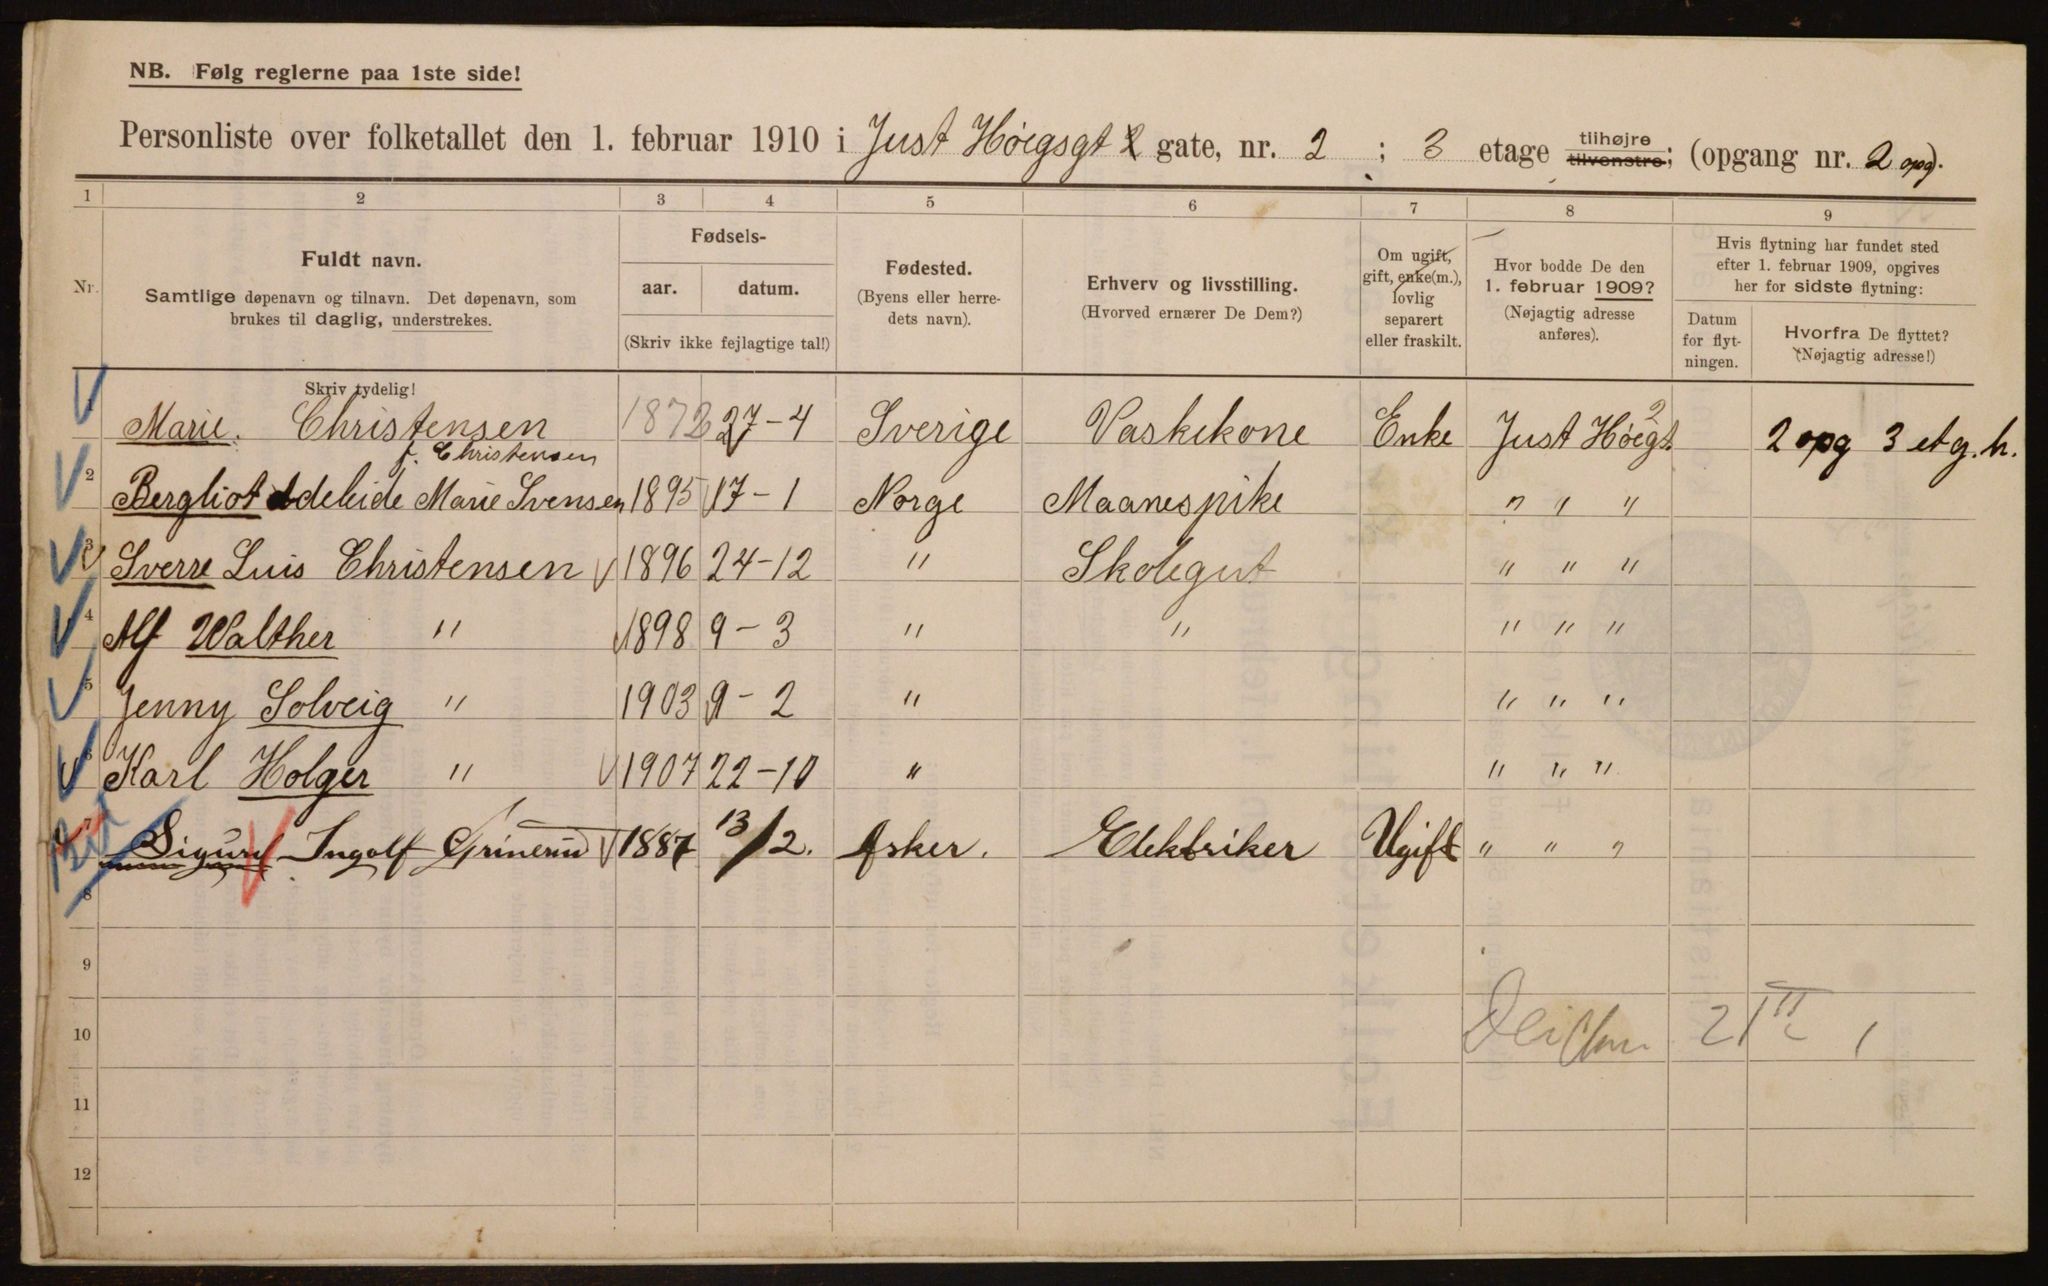 NB. Følg reglerne paa 1ste side!
Personliste over folketallet den 1. februar 1910 i Just Höegsgt 2 gate, nr. 2 ; 3 etage tilhøjre tilvenstre; (opgang nr. 2 opg).
1 2 3 4 5 6 7 8 9
Nr.
Fuldt navn.
Samtlige døpenavn og tilnavn. Det døpenavn, som
brukes til daglig, understrekes.
Skriv tydelig!
Fødsels-
aar. datum.
(Skriv ikke fejlagtige tal!)
Fødested.
(Byens eller herre-
dets navn).
Erhverv og livsstilling.
(Hvorved ernærer De Dem?)
Om ugift,
gift, enke(m.),
lovlig
separert
eller fraskilt.
Hvor bodde De den
1. februar 1909?
(Nøjagtig adresse
anføres).
Hvis flytning har fundet sted
efter 1. februar 1909, opgives
her for sidste flytning:
Datum
for flyt-
ningen.
Hvorfra De flyttet?
(Nøjagtig adresse!)
1 Marie. Christensen 1872 27-4 Sverige Vaskekone Enke Just Höegt 2 2 opg 3 etg. h.
f. Christensen
2 Bergliot Adeleide Marie Svensen 1895 17-1 Norge Maanespike " " "
3 Sverre Luis Christensen 1896 24-12 " Skolegut " " "
4 Alf Walther " 1898 9-3 " " " " "
5 Jenny Solveig " 1903 9-2 " " " "
6 Karl Holger " 1907 22-10 " " " "
7 Sigurd Ingolf Grinerud 1887 13/2. Asker. Elektriker Ugift " " "
8
9
10 21
11
12